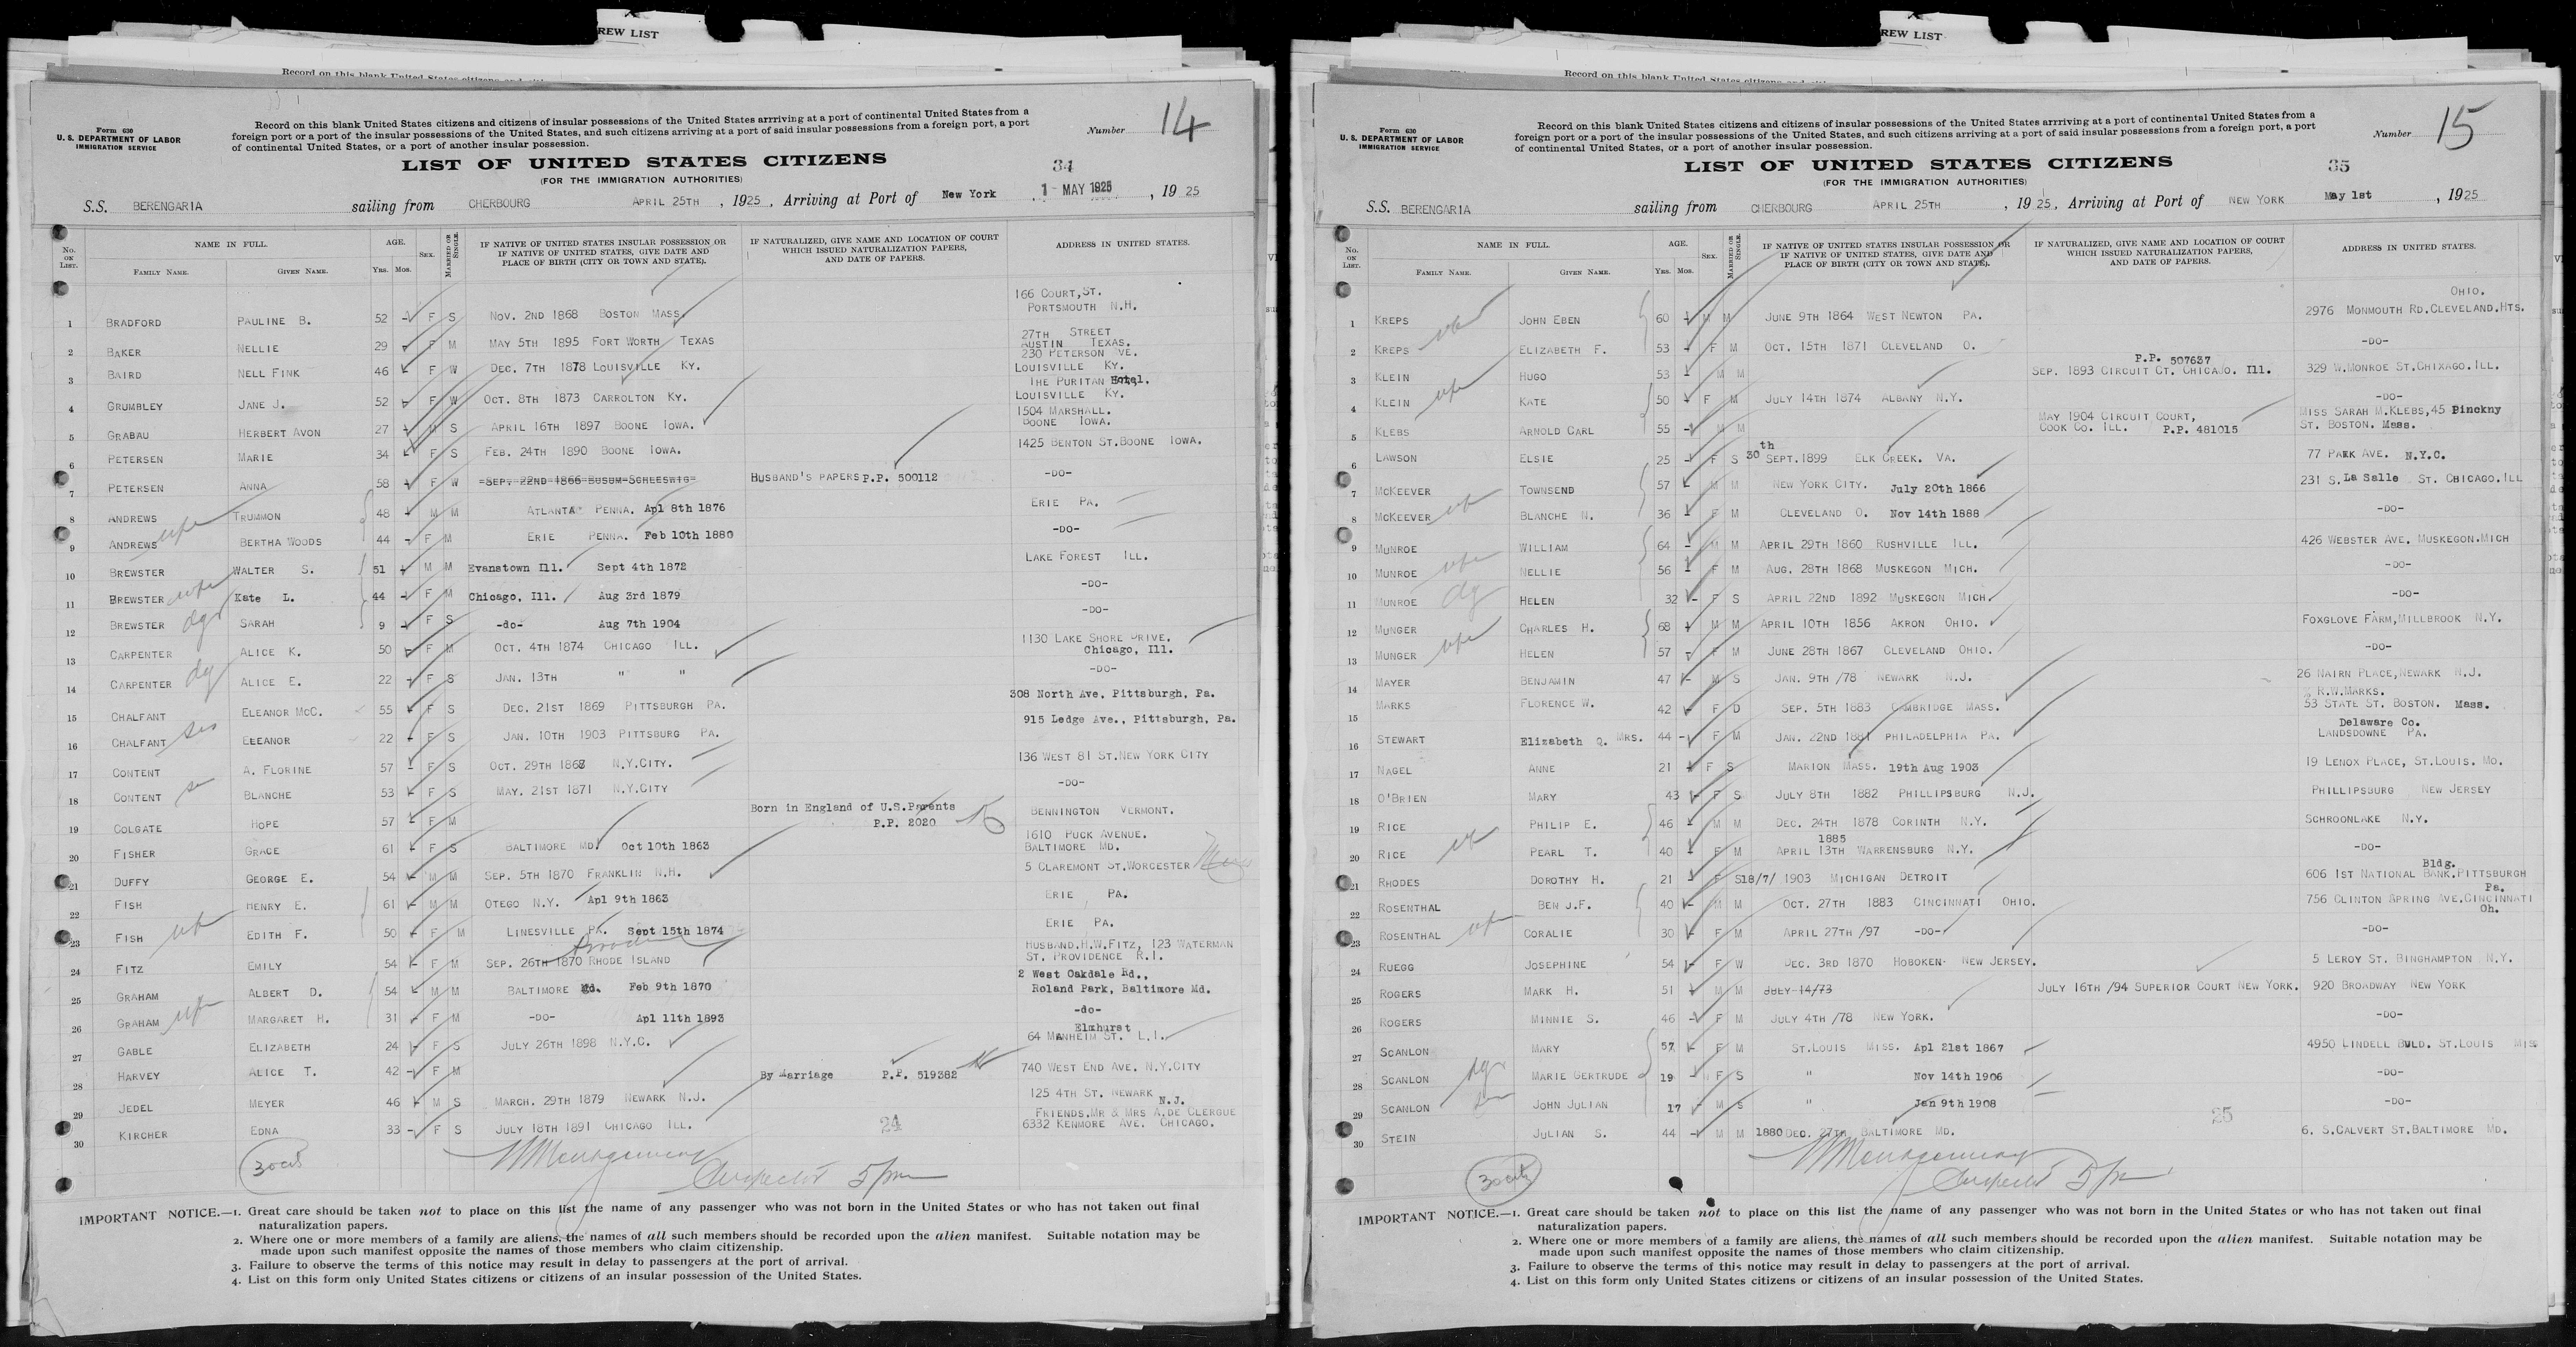 REW LIST
Record on this blank United States citizens and citi
Form 630
U. S. DEPARTMENT OF LABOR
IMMIGRATION SERVICE
Record on this blank United States citizens and citizens of insular possessions of the United States arrriving at a port of continental United States from a
foreign port or a port of the insular possessions of the United States, and such citizens arriving at a port of said insular possessions from a foreign port, a port
of continental United States, or a port of another insular possession.
Number 14
LIST OF UNITED STATES CITIZENS
34
(FOR THE IMMIGRATION AUTHORITIES)
S.S. BERENGARIA sailing from CHERBOURG APRIL 25TH , 1925, Arriving at Port of New York 1 - MAY 1925 , 1925
No. ON LIST. NAME IN FULL. FAMILY NAME. GIVEN NAME. AGE. YRS. MOS. SEX. MARRIED OR SINGLE. IF NATIVE OF UNITED STATES INSULAR POSSESSION OR IF NATIVE OF UNITED STATES, GIVE DATE AND PLACE OF BIRTH (CITY OR TOWN AND STATE). IF NATURALIZED, GIVE NAME AND LOCATION OF COURT WHICH ISSUED NATURALIZATION PAPERS, AND DATE OF PAPERS. ADDRESS IN UNITED STATES.
1 BRADFORD PAULINE B. 52 - F S NOV. 2ND 1868 BOSTON MASS. 166 COURT, ST. PORTSMOUTH N.H.
2 BAKER NELLIE 29 - F M MAY 5TH 1895 FORT WORTH TEXAS 27TH STREET AUSTIN TEXAS.
3 BAIRD NELL FINK 46 F W DEC. 7TH 1878 LOUISVILLE KY. 230 PETERSON VE. LOUISVILLE KY.
4 GRUMBLEY JANE J. 52 - F W OCT. 8TH 1873 CARROLTON KY. THE PURITAN Hotel. LOUISVILLE KY.
5 GRABAU HERBERT AVON 27 - M S APRIL 16TH 1897 BOONE IOWA. 1504 MARSHALL. BOONE IOWA.
6 PETERSEN MARIE 34 - F S FEB. 24TH 1890 BOONE IOWA. 1425 BENTON ST. BOONE IOWA.
7 PETERSEN ANNA 58 - F W SEP. 22ND 1866 BUSUM SCHLESWIG HUSBAND'S PAPERS P.P. 500112 -DO-
8 ANDREWS TRUMMON 48 - M M ATLANTA PENNA. Apl 8th 1876 ERIE PA.
9 ANDREWS wfe BERTHA WOODS 44 - F M ERIE PENNA. Feb 10th 1880 -DO-
10 BREWSTER WALTER S. 51 - M M Evanstown Ill. Sept 4th 1872 LAKE FOREST ILL.
11 BREWSTER wfe Kate L. 44 - F M Chicago, Ill. Aug 3rd 1879 -DO-
12 BREWSTER dgr SARAH 9 - F S -do- Aug 7th 1904 -DO-
13 CARPENTER ALICE K. 50 - F M OCT. 4TH 1874 CHICAGO ILL. 1130 LAKE SHORE DRIVE. Chicago, Ill.
14 CARPENTER dg ALICE E. 22 - F S JAN. 13TH " " -DO-
15 CHALFANT ELEANOR McC. 55 - F S DEC. 21ST 1869 PITTSBURGH PA. 308 North Ave, Pittsburgh, Pa.
16 CHALFANT sis ELEANOR 22 - F S JAN. 10TH 1903 PITTSBURG PA. 915 Ledge Ave., Pittsburgh, Pa.
17 CONTENT A. FLORINE 57 - F S OCT. 29TH 1868 N.Y.CITY. 136 WEST 81 ST. NEW YORK CITY
18 CONTENT BLANCHE 53 - F S MAY. 21ST 1871 N.Y.CITY -DO-
19 COLGATE HOPE 57 - F M Born in England of U.S. Parents P.P. 2020 BENNINGTON VERMONT.
20 FISHER GRACE 61 - F S BALTIMORE MD. Oct 10th 1863 1610 PUCK AVENUE. BALTIMORE MD.
21 DUFFY GEORGE E. 54 - M M SEP. 5TH 1870 FRANKLIN N.H. 5 CLAREMONT ST. WORCESTER Mass
22 FISH HENRY E. 61 - M M OTEGO N.Y. Apl 9th 1863 ERIE PA.
23 FISH wfe EDITH F. 50 - F M LINESVILLE PA. Sept 15th 1874 ERIE PA.
24 FITZ EMILY 54 - F M SEP. 26TH 1870 RHODE ISLAND HUSBAND. H.W. FITZ, 123 WATERMAN ST. PROVIDENCE R.I.
25 GRAHAM ALBERT D. 54 - M M BALTIMORE Md. Feb 9th 1870 2 West Oakdale Rd., Roland Park, Baltimore Md.
26 GRAHAM wfe MARGARET H. 31 - F M -DO- Apl 11th 1893 -do-
27 GABLE ELIZABETH 24 - F S JULY 26TH 1898 N.Y.C. Elmhurst 64 MANHEIM ST. L.I.
28 HARVEY ALICE T. 42 - F M By Marriage P.P. 519382 740 WEST END AVE. N.Y.CITY
29 JEDEL MEYER 46 - M S MARCH. 29TH 1879 NEWARK N.J. 125 4TH ST. NEWARK N.J.
30 KIRCHER EDNA 33 - F S JULY 18TH 1891 CHICAGO ILL. 24 FRIENDS. MR & MRS A. DE CLERGUE 6332 KENMORE AVE. CHICAGO.
30 cits
Inspector 5 pm
IMPORTANT NOTICE.—1. Great care should be taken not to place on this list the name of any passenger who was not born in the United States or who has not taken out final
naturalization papers.
2. Where one or more members of a family are aliens, the names of all such members should be recorded upon the alien manifest. Suitable notation may be
made upon such manifest opposite the names of those members who claim citizenship.
3. Failure to observe the terms of this notice may result in delay to passengers at the port of arrival.
4. List on this form only United States citizens or citizens of an insular possession of the United States.
REW LIST
Record on this blank United States citizens and citi
Form 630
U. S. DEPARTMENT OF LABOR
IMMIGRATION SERVICE
Record on this blank United States citizens and citizens of insular possessions of the United States arrriving at a port of continental United States from a
foreign port or a port of the insular possessions of the United States, and such citizens arriving at a port of said insular possessions from a foreign port, a port
of continental United States, or a port of another insular possession.
Number 15
LIST OF UNITED STATES CITIZENS
35
(FOR THE IMMIGRATION AUTHORITIES)
S.S. BERENGARIA sailing from CHERBOURG APRIL 25TH , 1925, Arriving at Port of NEW YORK May 1st , 1925
No. ON LIST. NAME IN FULL. FAMILY NAME. GIVEN NAME. AGE. YRS. MOS. SEX. MARRIED OR SINGLE. IF NATIVE OF UNITED STATES INSULAR POSSESSION OR IF NATIVE OF UNITED STATES, GIVE DATE AND PLACE OF BIRTH (CITY OR TOWN AND STATE). IF NATURALIZED, GIVE NAME AND LOCATION OF COURT WHICH ISSUED NATURALIZATION PAPERS, AND DATE OF PAPERS. ADDRESS IN UNITED STATES.
1 KREPS JOHN EBEN 60 - M M JUNE 9TH 1864 WEST NEWTON PA. OHIO. 2976 MONMOUTH RD. CLEVELAND. HTS.
2 KREPS wfe ELIZABETH F. 53 - F M OCT. 15TH 1871 CLEVELAND O. -DO-
3 KLEIN HUGO 53 - M M P.P. 507637 SEP. 1893 CIRCUIT CT. CHICAGO. Ill. 329 W. MONROE ST. CHIXAGO. ILL.
4 KLEIN wfe KATE 50 - F M JULY 14TH 1874 ALBANY N.Y. -DO-
5 KLEBS ARNOLD CARL 55 - M M MAY 1904 CIRCUIT COURT, COOK CO. ILL. P.P. 481015 MISS SARAH M. KLEBS, 45 Pinckny ST. BOSTON. Mass.
6 LAWSON ELSIE 25 - F S 30th SEPT. 1899 ELK CREEK. VA. 77 PARK AVE. N.Y.C.
7 McKEEVER TOWNSEND 57 - M M NEW YORK CITY. July 20th 1866 231 S. La Salle ST. CHICAGO. ILL
8 McKEEVER wfe BLANCHE N. 36 - F M CLEVELAND O. Nov 14th 1888 -DO-
9 MUNROE WILLIAM 64 - M M APRIL 29TH 1860 RUSHVILLE ILL. 426 WEBSTER AVE. MUSKEGON. MICH
10 MUNROE wfe NELLIE 56 - F M AUG. 28TH 1868 MUSKEGON MICH. -DO-
11 MUNROE dg HELEN 32 - F S APRIL 22ND 1892 MUSKEGON MICH. -DO-
12 MUNGER CHARLES H. 68 - M M APRIL 10TH 1856 AKRON OHIO. FOXGLOVE FARM, MILLBROOK N.Y.
13 MUNGER wfe HELEN 57 - F M JUNE 28TH 1867 CLEVELAND OHIO. -DO-
14 MAYER BENJAMIN 47 - M S JAN. 9TH /78 NEWARK N.J. 26 NAIRN PLACE, NEWARK N.J.
15 MARKS FLORENCE W. 42 - F D SEP. 5TH 1883 CAMBRIDGE MASS. R.W. MARKS. 53 STATE ST. BOSTON. Mass.
16 STEWART Elizabeth Q. MRS. 44 - F M JAN. 22ND 1881 PHILADELPHIA PA. Delaware Co. LANDSDOWNE PA.
17 NAGEL ANNE 21 - F S MARION MASS. 19th Aug 1903 19 LENOX PLACE, ST. LOUIS. MO.
18 O'BRIEN MARY 43 - F S JULY 8TH 1882 PHILLIPSBURG N.J. PHILLIPSBURG NEW JERSEY
19 RICE PHILIP E. 46 - M M DEC. 24TH 1878 CORINTH N.Y. SCHROONLAKE N.Y.
20 RICE wfe PEARL T. 40 - F M 1885 APRIL 13TH WARRENSBURG N.Y. -DO-
21 RHODES DOROTHY H. 21 - F S 18/7/ 1903 MICHIGAN DETROIT Bldg. 606 1ST NATIONAL BANK. PITTSBURGH Pa.
22 ROSENTHAL BEN J.F. 40 - M M OCT. 27TH 1883 CINCINNATI OHIO. 756 CLINTON APRING AVE. CINCINNATI Oh.
23 ROSENTHAL wfe CORALIE 30 - F M APRIL 27TH /97 -DO- -DO-
24 RUEGG JOSEPHINE 54 - F W DEC. 3RD 1870 HOBOKEN- NEW JERSEY. 5 LEROY ST. BINGHAMPTON N.Y.
25 ROGERS MARK H. 51 - M M JULY 14/73 JULY 16TH /94 SUPERIOR COURT NEW YORK. 920 BROADWAY NEW YORK
26 ROGERS MINNIE S. 46 - F M JULY 4TH /78 NEW YORK. -DO-
27 SCANLON MARY 57 - F M ST. LOUIS MISS. Apl 21st 1867 4950 LINDELL BULD. ST. LOUIS MIS
28 SCANLON dgr MARIE GERTRUDE 19 - F S " Nov 14th 1906 -DO-
29 SCANLON JOHN JULIAN 17 - M S " Jan 9th 1908 -DO-
30 STEIN JULIAN S. 44 - M M 1880 DEC. 27TH BALTIMORE MD. 25 6. S. CALVERT ST. BALTIMORE MD.
30 cits
Inspector 5 pm
IMPORTANT NOTICE.—1. Great care should be taken not to place on this list the name of any passenger who was not born in the United States or who has not taken out final
naturalization papers.
2. Where one or more members of a family are aliens, the names of all such members should be recorded upon the alien manifest. Suitable notation may be
made upon such manifest opposite the names of those members who claim citizenship.
3. Failure to observe the terms of this notice may result in delay to passengers at the port of arrival.
4. List on this form only United States citizens or citizens of an insular possession of the United States.